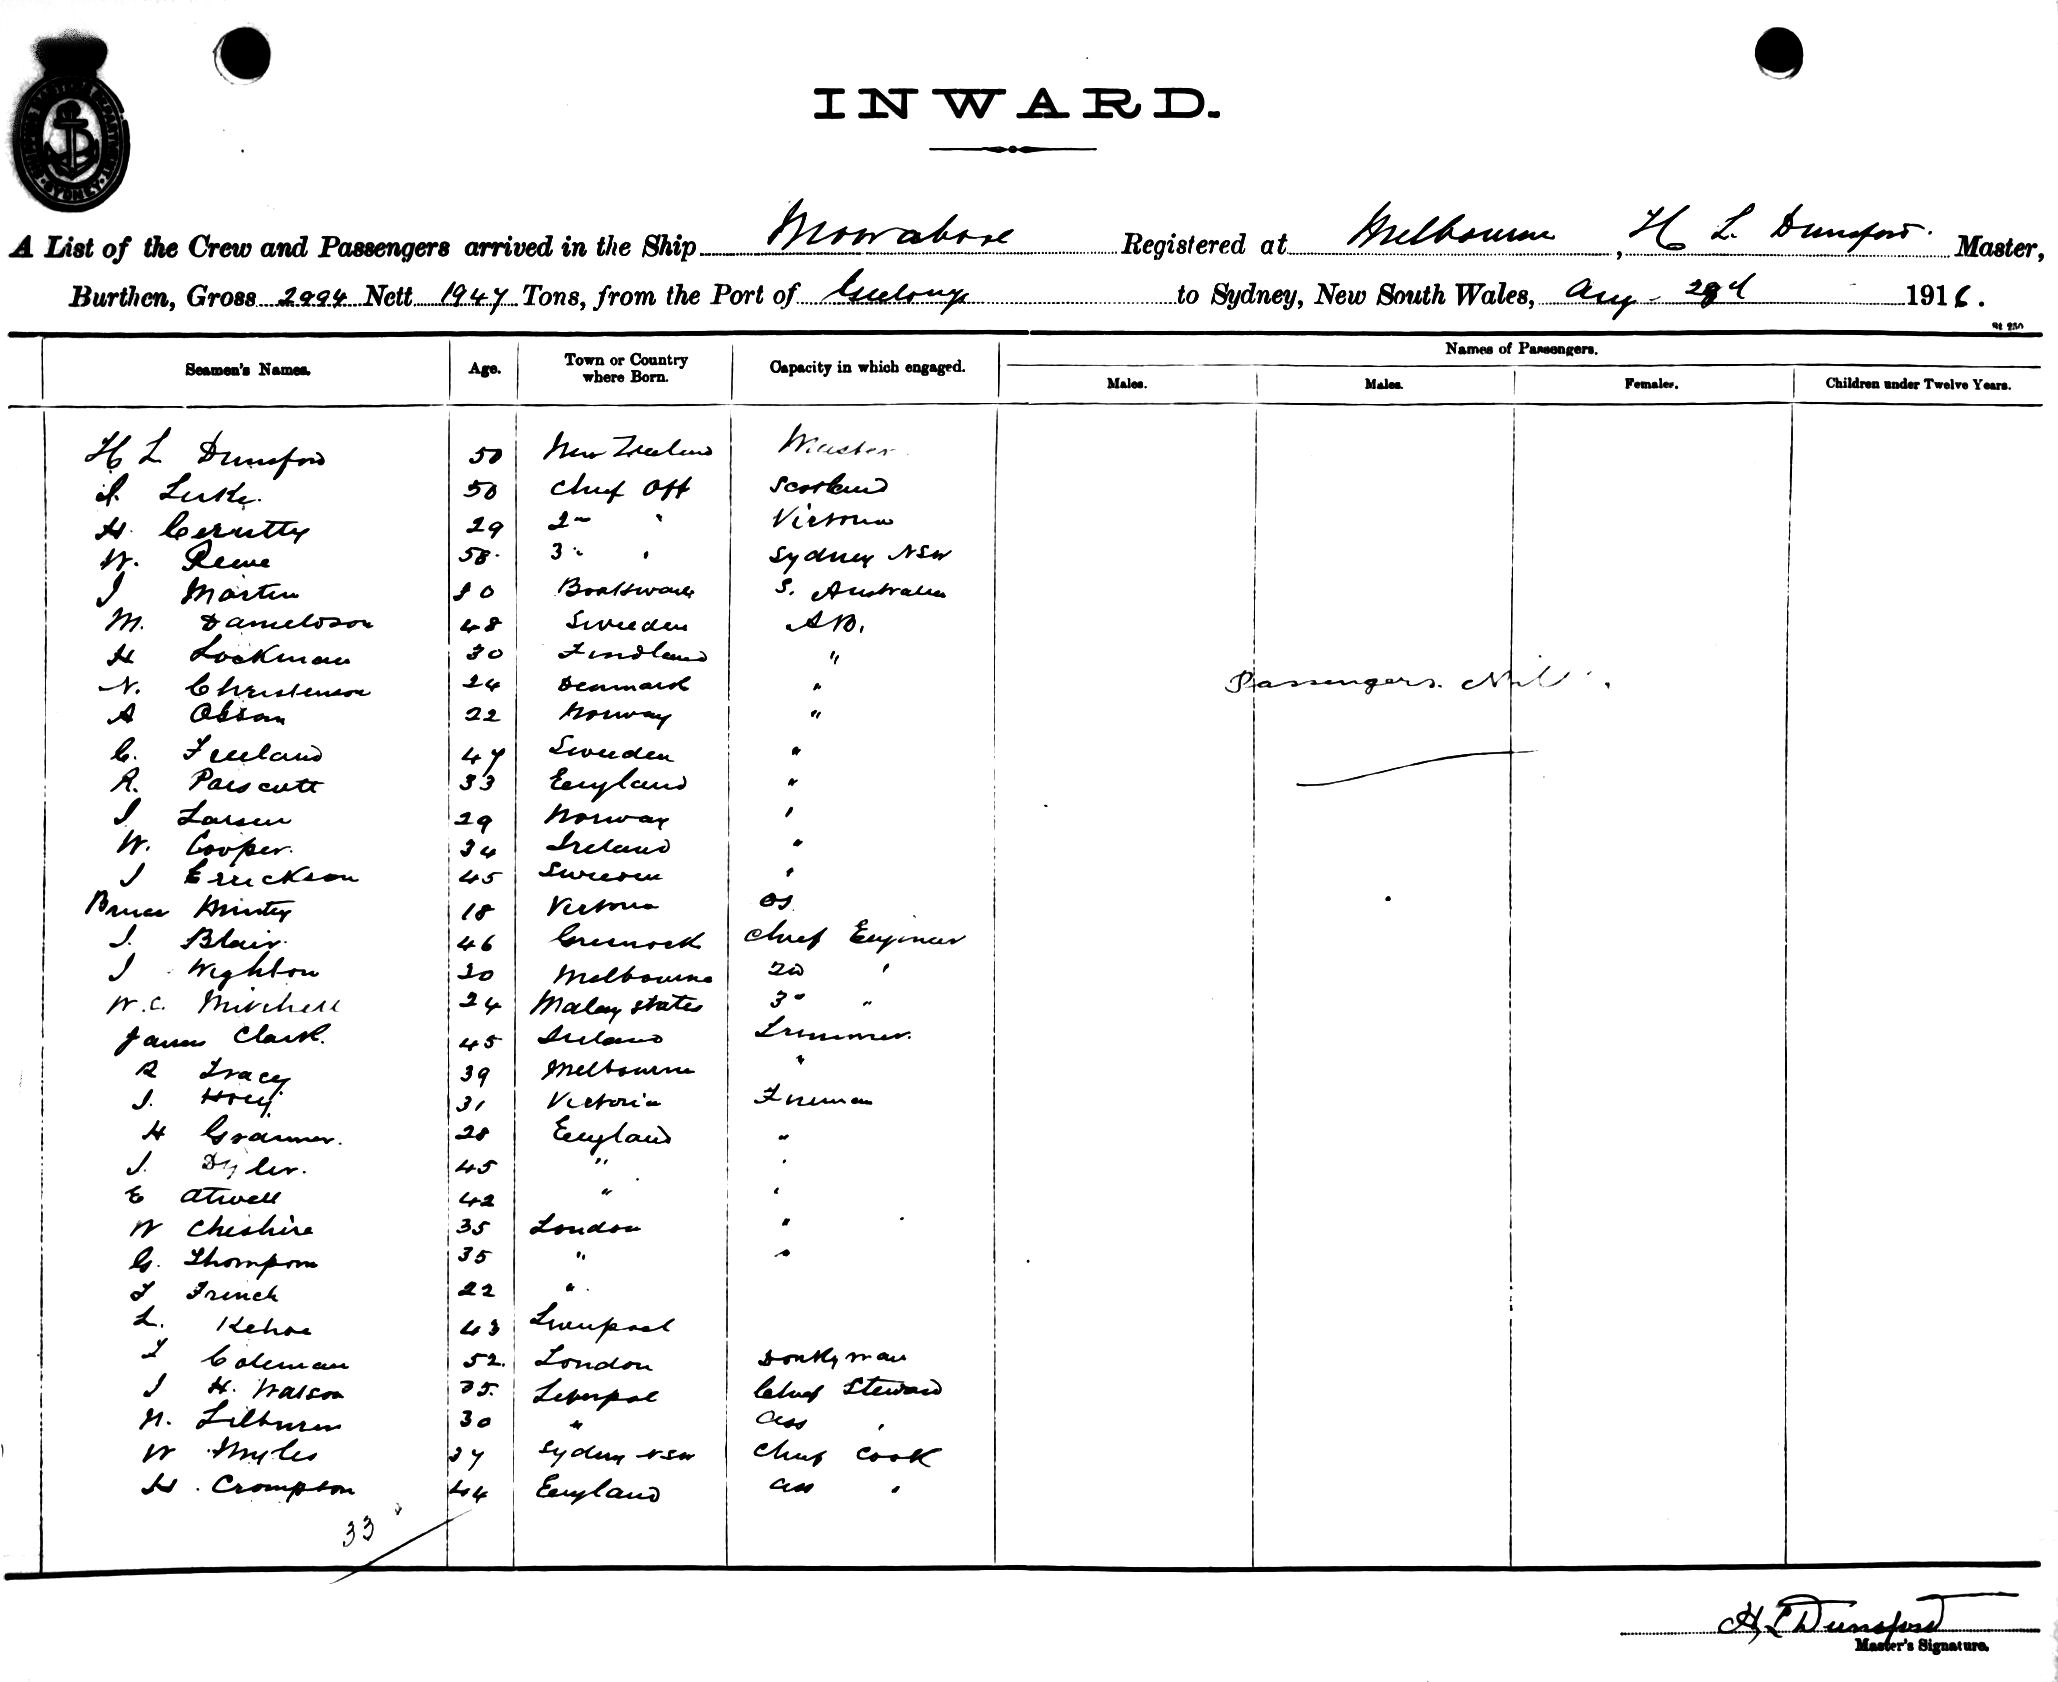 SHIPPING MASTER'S DEPARTMENT SYDNEY
INWARD.
A List of the Crew and Passengers arrived in the Ship Moorabool Registered at Melbourne, H L Dunsford Master,
Burthen, Gross 2994 Nett 1947 Tons, from the Port of Geelong to Sydney, New South Wales, Aug 1916.
St 250
Seamen's Names. Age. Town or Country where Born. Capacity in which engaged. Names of Passengers.
Males. Males. Females. Children under Twelve Years.
H L Dunsford 50 New Zealand Master
Luke. 50 Chief Off Scotland
H. Cerutty 29 2nd " Victoria
W. Reeve 58 3 " Sydney NSW
J Martin Boatswain S. Australia
M. Danieldson 48 Sweden AB.
H Lockman 30 Findland "
N. Christenson 24 Denmark "
A Olsson 22 Norway "
Passengers. Nil.
C. Freeland 47 Sweden "
R. Parscott 33 England "
J Larsen 29 Norway "
W. Cooper. 34 Ireland "
J Errickson 45 Sweden "
Bruce Minty 18 Victoria OS
J. Blair. 46 Greenock Chief Engineer
J Wighton 20 Melbourne 2nd "
W.C. Mitchell 24 Malay States 3 "
James Clark. 45 Ireland Trimmer.
R Tracey 39 Melbourne "
J. Hoey 31 Victoria Fireman
H 28 England "
J. Dyler. 45 " "
E Atwell 42 " "
W Cheshire 35 London "
G. Thompson 35 " "
T French 22 "
L. Kehoe 43 Liverpool
T Coleman 52. London Donkyman
J H. Watson 35. Liverpol Chief Steward
N. Lilburn 30 " Ass "
W Myles 37 Sydney NSW Chief Cook
H. Crompton 44 England Ass "
33
H L Dunsford
Master's Signature.